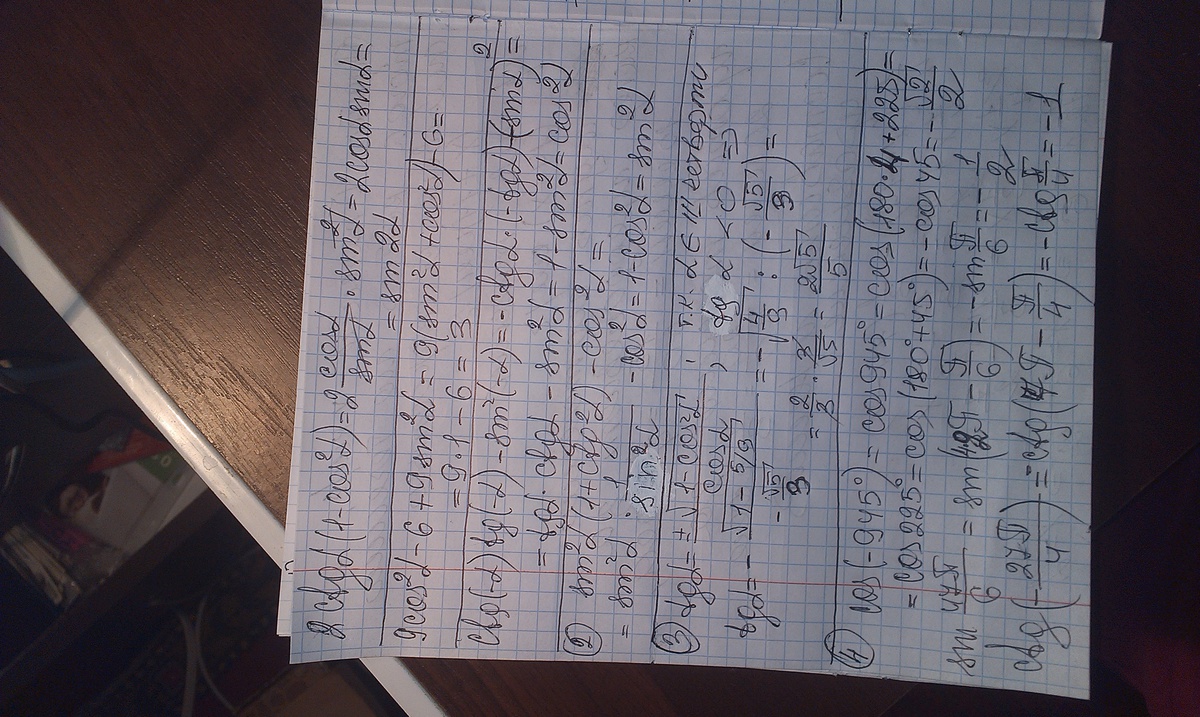 2 ctgα(1-cos²α)=2 cosα/sinα · sin²α = 2cosα sinα =
= sin2α
9cos²α-6+9sin²α = 9(sin²α+cos²α)-6=
= 9·1-6=3
ctg(-α)tg(-α)-sin²(-α)=-ctgα·(-tgα)-(sinα)²=
= tgα·ctgα-sin²α=1-sin²α=cos²α
② sin²α(1+ctg²α)-cos²α=
= sin²α · 1/sin²α -cos²α=1-cos²α=sin²α
③ tgα=±√1-cos²α/cosα ; т.к. α∈III четверти
, tgα<0 ⇒
tgα=- √1-5/9 / -√5/3 =-√4/9 : (-√5/3)=
= 2/3 · 3/√5 = 2√5/5
④ cos(-945°)=cos945°=cos(180·4+225)=
= cos225°=cos(180°+45°)=-cos45=-√2/2
sin 47π/6 = sin(48π/6 - π/6)=-sin π/6=-1/2
ctg(-27π/4)=ctg(7π-π/4)=-ctg π/4=-1